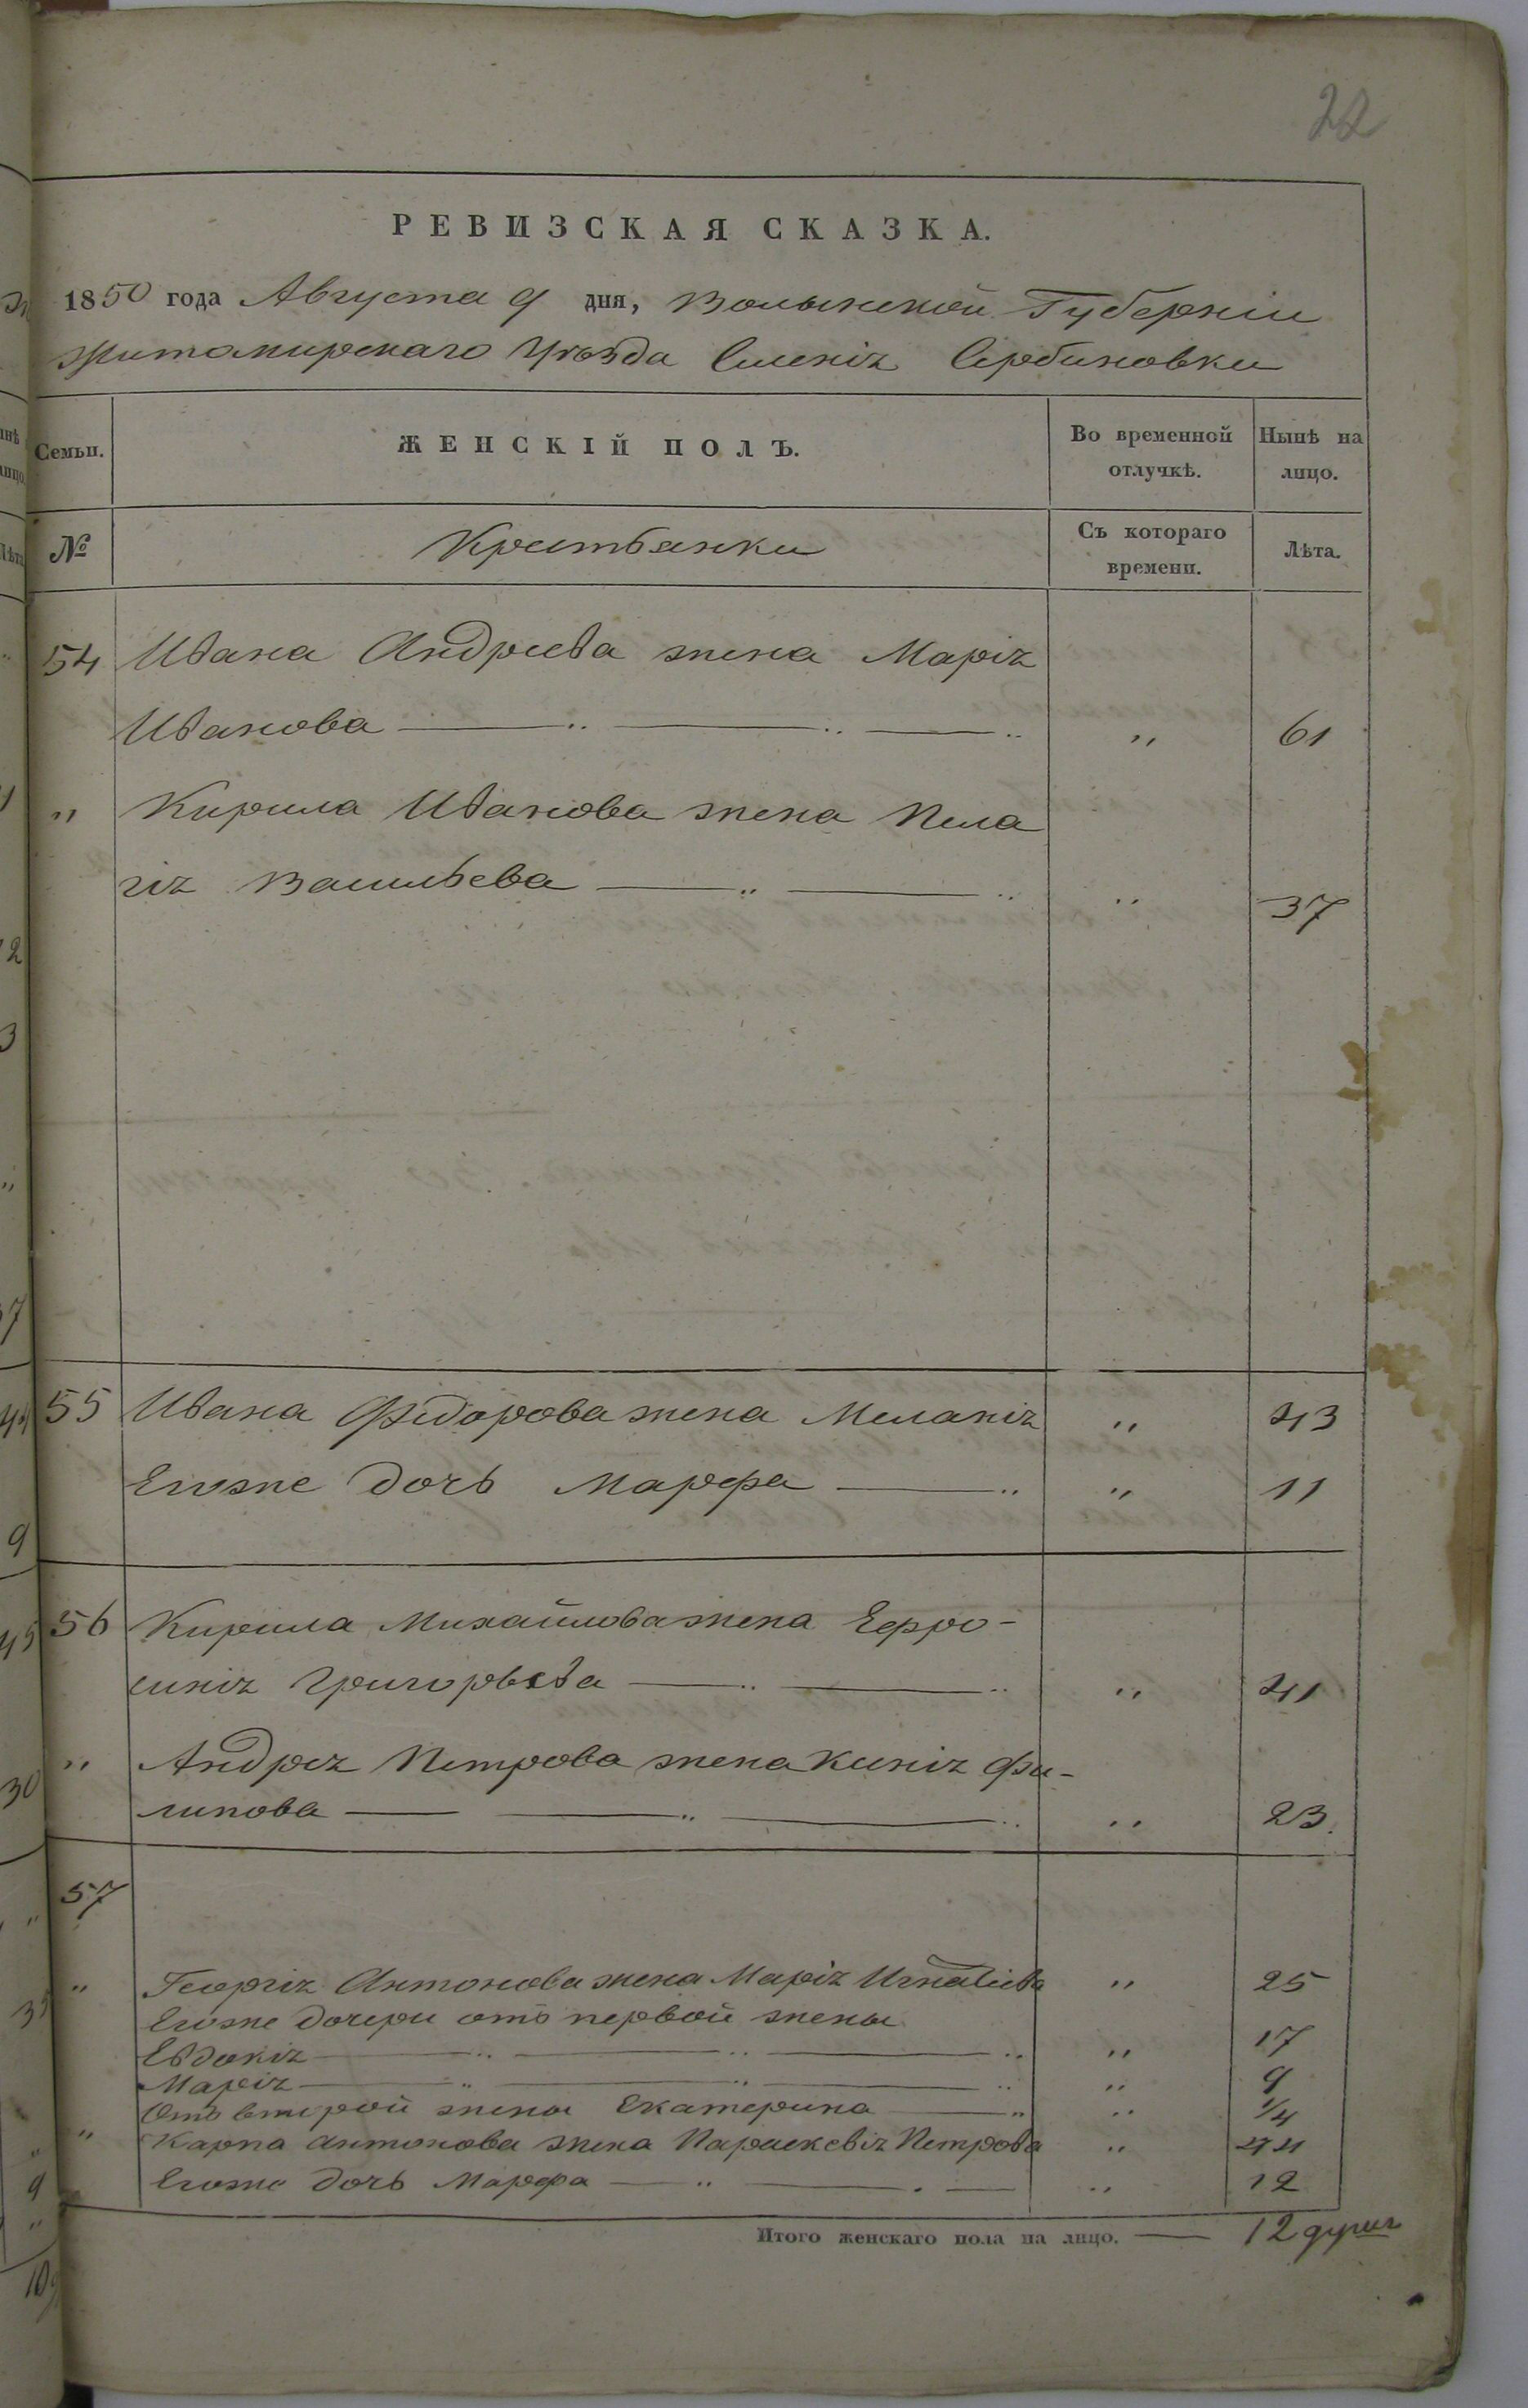 22
РЕВИЗСКАЯ СКАЗКА.
1850 года Августа 9 дня, Волынской Губерніи
Житомирскаго Уѣзда Селенія Сербиновки
Семьи.
ЖЕНСКІЙ ПОЛЪ.
Во временной отлучкѣ.
Нынѣ на лицо.
№
Крестьянки
Съ котораго времени.
Лѣта.
54 Ивана Андреева жена Марія
Иванова " 61
" Кирила Иванова жена Пела
гія Васильева " 37
55 Ивана Федорова жена Меланія " 43
Егоже дочь Марфа " 11
56 Кирила Михайлова жена Ефро-
синія Григорьева " 41
" Андрея Петрова жена Ксенія Фи-
липова " 23.
57
" Георгія Антонова жена Марія Игнатіева " 25
Егоже дочери отъ первой жены
Евдокія " 17
Марія " 9
Отъ второй жены Екатерина " 1/4
" Карпа Антонова жена Параскевія Петрова "
Егоже дочь Марфа " 12
Итого женскаго пола на лицо. 12 душъ